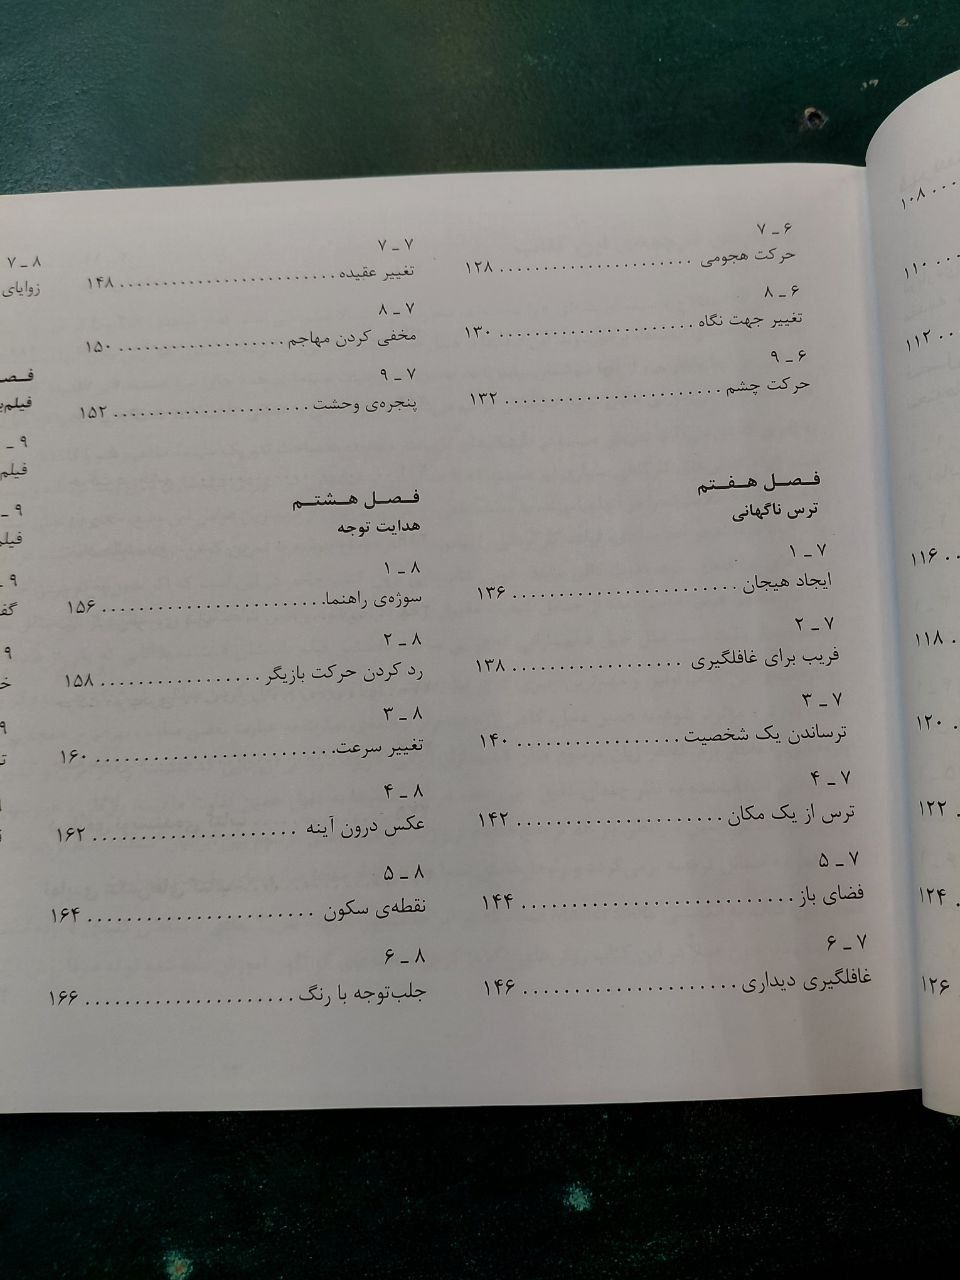 ۱۰۸
۱۱۰
۱۱۲
۱۱۶
۱۱۸
۱۲۰
۱۲۲
۱۲۴
۱۲۶
۶ ـ ۷
حرکت هجومی ۱۲۸
۶ ـ ۸
تغییر جهت نگاه ۱۳۰
۶ ـ ۹
حرکت چشم ۱۳۲
فصل هفتم
ترس ناگهانی
۷ ـ ۱
ایجاد هیجان ۱۳۶
۷ ـ ۲
فریب برای غافلگیری ۱۳۸
۷ ـ ۳
ترساندن یک شخصیت ۱۴۰
۷ ـ ۴
ترس از یک مکان ۱۴۲
۷ ـ ۵
فضای باز ۱۴۴
۷ ـ ۶
غافلگیری دیداری ۱۴۶
۷ ـ ۷
تغییر عقیده ۱۴۸
۷ ـ ۸
مخفی کردن مهاجم ۱۵۰
۷ ـ ۹
پنجره‌ی وحشت ۱۵۲
فصل هشتم
هدایت توجه
۸ ـ ۱
سوژه‌ی راهنما ۱۵۶
۸ ـ ۲
رد کردن حرکت بازیگر ۱۵۸
۸ ـ ۳
تغییر سرعت ۱۶۰
۸ ـ ۴
عکس درون آینه ۱۶۲
۸ ـ ۵
نقطه‌ی سکون ۱۶۴
۸ ـ ۶
جلب‌توجه با رنگ ۱۶۶
۸ ـ ۷
زوایای
۹ ـ
۹ ـ
۹ ـ
۹